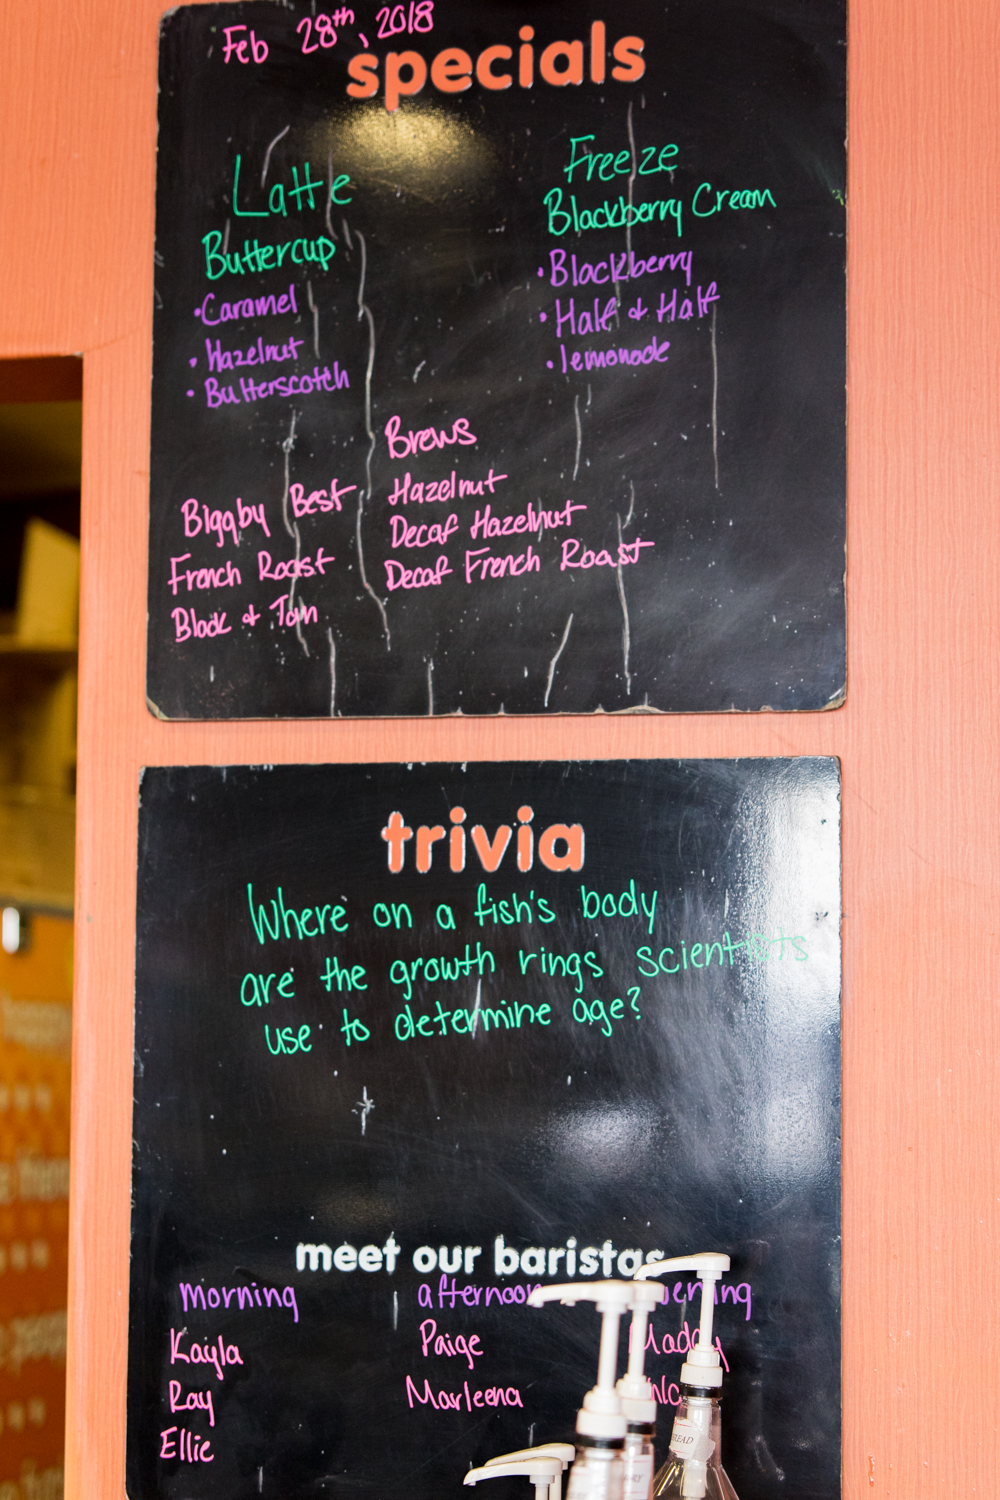 Feb 28th, 2018
specials
Latte
Buttercup
•Caramel
•Hazelnut
•Butterscotch
Freeze
Blackberry Cream
•Blackberry
•Half & Half
•lemonade
Brews
Biggby Best
French Roast
Black & Tan
Hazelnut
Decaf Hazelnut
Decaf French Roast
trivia
Where on a fish's body
are the growth rings scientists
use to determine age?
meet our baristas
morning
Kayla
Ray
Ellie
afternoon
Paige
Marleena
evening